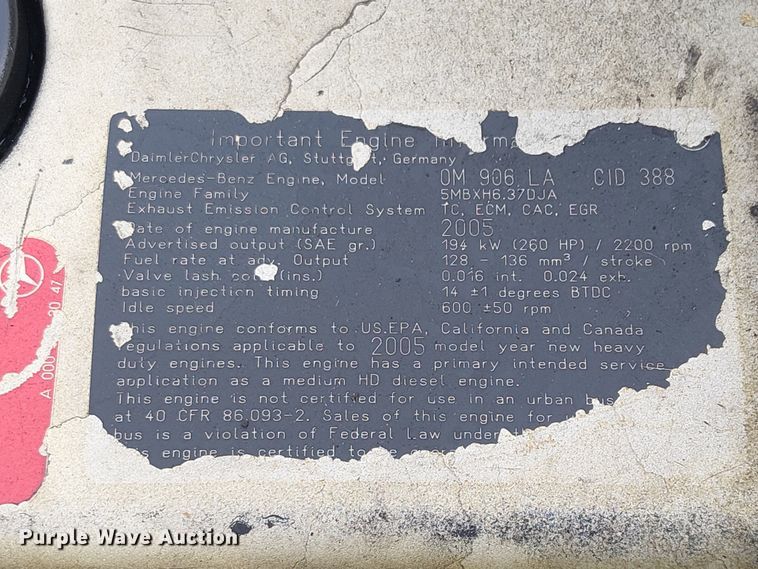 Important Engine
DaimlerChrysler AG, Stuttgart, Germany
Mercedes-Benz Engine, Model OM 906 LA CID 388
Engine Family 5MBXH6.37DJA
Exhaust Emission Control System TC, ECM, CAC, EGR
Date of engine manufacture 2005
Advertised output (SAE gr.) 194 kW (260 HP) / 2200 rpm
Fuel rate at adv. Output 128 - 136 mm³ / stroke
Valve lash (ins.) 0.016 int. 0.024 exh.
basic injection timing 14 ±1 degrees BTDC
Idle speed 600 ±50 rpm
This engine conforms to US.EPA, California and Canada
regulations applicable to 2005 model year new heavy
duty engines. This engine has a primary intended service
application as a medium HD diesel engine.
This engine is not certified for use in an urban bus
at 40 CFR 86.093-2. Sales of this engine for
bus is a violation of Federal Law under
engine is certified to be
A 000 20 47
Purple Wave Auction